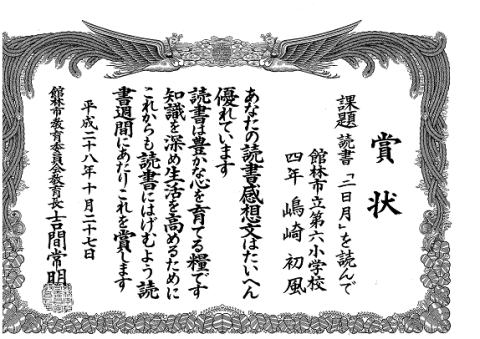 賞状
課題 読書「二日月」を読んで
館林市立第六小学校
四年 嶋崎 初風
あなたの読書感想文はたいへん
優れています
読書は豊かな心を育てる糧です
知識を深め生活を高めるために
これからも読書にはげむよう読
書週間にあたりこれを賞します
平成二十八年十月二十七日
館林市教育委員会教育長 吉間常明